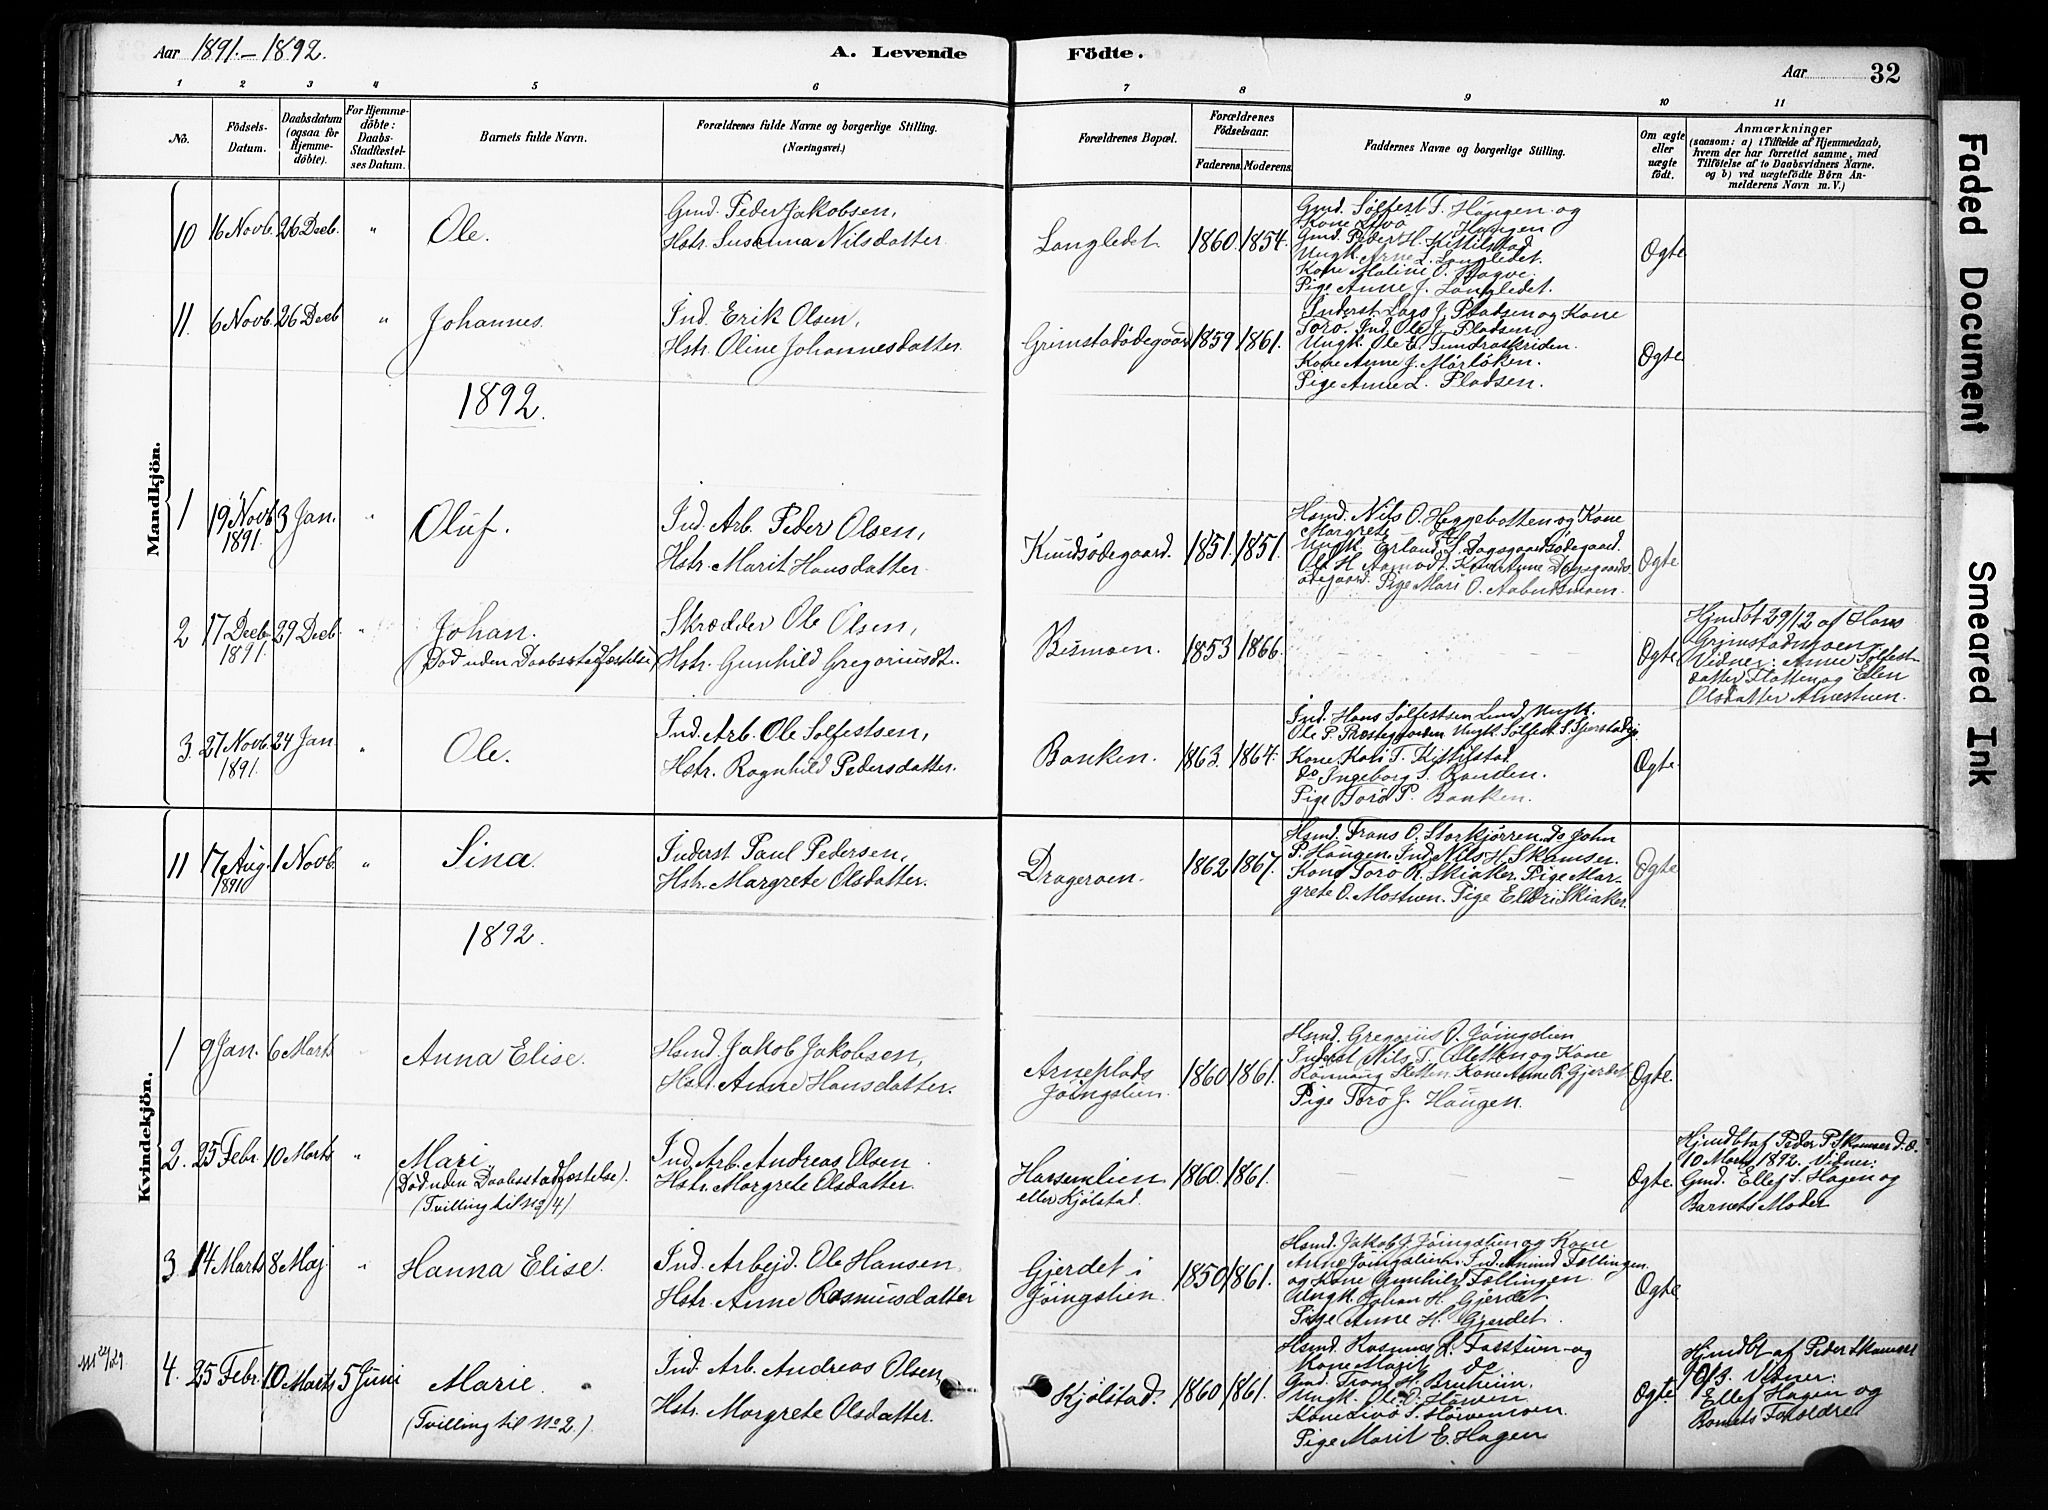 Aar 1891.-1892.
A. Levende Födte.
Aar 32
1 2 3 4 5 6 7 8 9 10 11
No.
Födsels-Datum.
Daabsdatum (ogsaa for Hjemme-döbte).
For Hjemme-döbte: Daabs-Stadfæstel-ses Datum.
Barnets fulde Navn.
Forældrenes fulde Navne og borgerlige Stilling.
(Næringsvei.)
Forældrenes Bopæl.
Forældrenes Födselsaar.
Faderens. Moderens.
Faddernes Navne og borgerlige Stilling.
Om ægte eller uægte födt.
Anmærkninger
(saasom: a) i Tilfælde af Hjemmedaab, hvem der har forrettet samme, med Tilföielse af to Daabsvidners Navne. og b) ved uægtefödte Börn An-melderens Navn m. V.)
Mandkjön.
10 16 Novb. 26 Decb. " Ole.
Gmd. Peder Jakobsen,
Hstr. Susanna Nilsdatter.
Langledet. 1860. 1854.
Gmd. Sølfest T. Haugen og
Kone Haugen
Gmd. Peder H. Kittilstad
Ungk. Arne L. Langledet.
Kone Maline O.
Pige Anne J. Langledet.
Ægte
11. 6 Novb. 26 Decb " Johannes.
Ind. Erik Olsen,
Hstr. Oline Johannesdatter.
Grimstadødegaard 1859 1861.
Inderst. Lars J. Pladsen og Kone
Toro. Ind. Ole J. Pladsen
Ungk. Ole E. Tundraskriden.
Kone Anne J.
Pige Anne L. Pladsen.
Ægte
1892.
1 19 Novb. 1891. 3 Jan. " Oluf.
Ind. Arb. Peder Olsen,
Hstr. Marit Hansdatter.
Knudsødegaard. 1851. 1851.
Hsmd. Nils O. Heggebotten og Kone
Margrete do
Ungk. Erland S. Dagsgaardsødegaard.
Ole H. Aamodt. Kone Anne Dagsgaards-
ødegaard. Pige Mari O.
Ægte
2 17 Decb. 1891. 29 Decb. " Johan.
(Død uden Daabsstadfæstelse)
Skrædder Ole Olsen,
Hstr. Gunhild Gregoriusdt.
Bismoen. 1853 1866.
— — —
Ægte
Hjmdbt 29/12 af Hans
Grimstadmoen.
Vidner: Anne Sølfest-
datter Flatten og Elen
Olsdatter Arnestuen.
3. 27 Novb. 1891. 24 Jan " Ole.
Ind. Arb. Ole Solfestsen,
Hstr. Ragnhild Pedersdatter.
Banken. 1863. 1864.
Ind. Hans Sølfestsen Lund, Ungk.
Ole P. Ungk. Sølfest S.
Kone Kari T. Kittilstad
do Ingeborg S. Randen.
Pige Toro P. Banken.
Ægte.
Kvindekjön.
11 17 Aug. 1891 1 Novb. " Sina.
Inderst Paul Pedersen,
Hstr. Margrete Olsdatter.
Drageroen. 1862 1867.
Hsmd. Frans O. Storkjørren, do John
P. Haugen. Ind. Nils H. Skamser.
Kone Toro R. Skiaker. Pige Mar-
grete O. Mostuen. Pige Eldri Skiaker.
Ægte
1892.
1 9 Jan. 6 Marts " Anna Elise.
Hsmd. Jakob Jakobsen,
Hstr. Anne Hansdatter.
Arneplads
Jøingslien. 1860 1861.
Hsmd. Gregorius O. Jøingslien
Inderst Nils T. Sletten og Kone
Rønnaug Sletten. Kone Anne R. Gjerdet
Pige Toro J. Haugen.
Ægte.
2. 25 Febr. 10 Marts " Mari
(Død uden Daabsstadfæstelse).
(Tvilling til No 4)
Ind. Arb. Andreas Olsen
Hstr. Margrete Olsdatter.
Harsemlien
eller Kjølstad. 1860. 1861.
— — —
Ægte
Hjmdbt af Peder P. Skamser d. o.
10 Marts 1892. Vidner:
Gmd. Ellef S. Hagen og
Barnets Moder
3 14 Marts 8 Maj " Hanna Elise.
Ind. Arbejd. Ole Hansen
Hstr. Anne Rasmusdatter
Gjerdet i
Jøingslien. 1850 1861.
Hsmd. Jakob J. Jøingslien og Kone
Anne Jøingslien. Ind. AmundFøllingen
og Kone Gunhild Føllingen.
Ungk. Johan H. Gjerdet.
Pige Anne H. Gjerdet.
Ægte
4. 25 Febr. 10 Marts 5 Juni Marie.
(Tvilling til No 2.)
Ind. Arb. Andreas Olsen
Hstr. Margrete Olsdatter.
Kjølstad. 1860 1861.
Hsmd. Rasmus L. og
Kone Marit do
Gmd. Frans H. Bruheim.
Ungk. Ole D.
Kone Livø S.
Pige Marit E. Hagen
Ægte.
Hjmdbt af Peder Skamser
10/3. Vidner:
Ellef Hagen og
Barnets Forældre
Faded Document
Smeared Ink